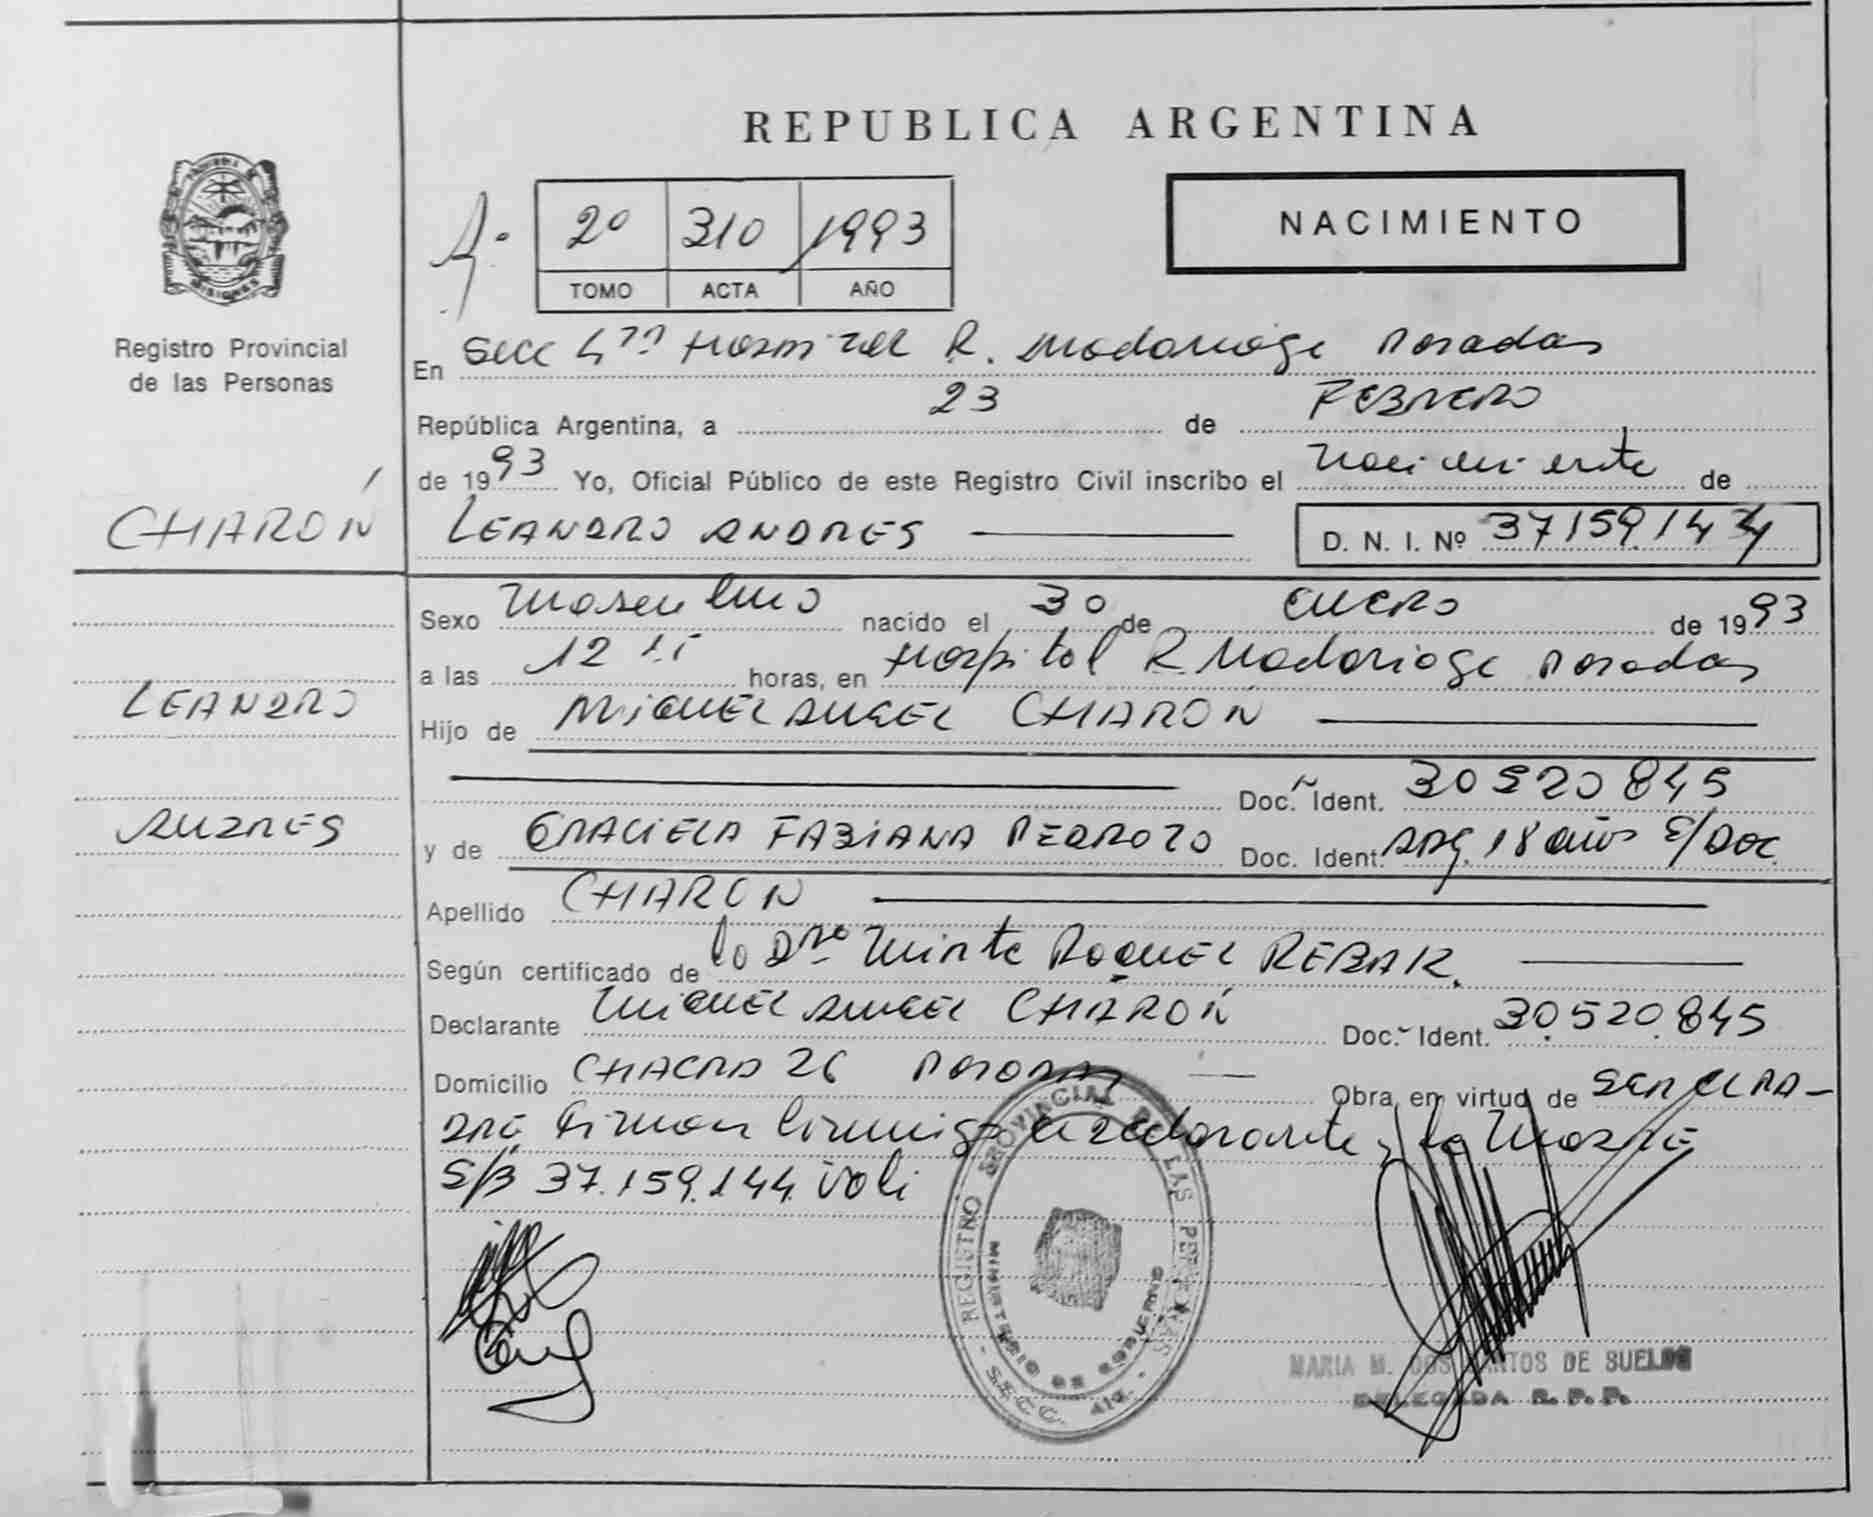 REPUBLICA ARGENTINA
NACIMIENTO
2º 310 1993
TOMO ACTA AÑO
MISIONES
Registro Provincial
de las Personas
En Secc 4ta Hospital R. Madariaga Posadas
República Argentina, a 23 de FEBRERO
de 1993 Yo, Oficial Público de este Registro Civil inscribo el Nacimiento de
CHARON
LEANDRO ANDRES
D. N. I. Nº 37159144
Sexo Masculino nacido el 30 de ENERO de 1993
a las 12 horas, en Hospital R Madariaga Posadas
LEANDRO
Hijo de MIGUEL ANGEL CHARON
Doc. Ident. 30520845
ANDRES
y de GRACIELA FABIANA PEDROZO Doc. Ident. ARG. 18 años S/DOC
Apellido CHARON
Según certificado de la Dra Mirta RAQUEL REBAK.
Declarante MIGUEL ANGEL CHARON Doc. Ident. 30.520.845
Domicilio CHACRA 26 POSADAS Obra en virtud de SER EL PA-
DRE Firman conmigo el declarante y la MADRE
S/B 37.159.144 vale
REGISTRO PROVINCIAL DE LAS PERSONAS
MINISTERIO DE GOBIERNO
SECC. 4ta.
MARIA M. DOS SANTOS DE SUELDO
DELEGADA R. P. P.